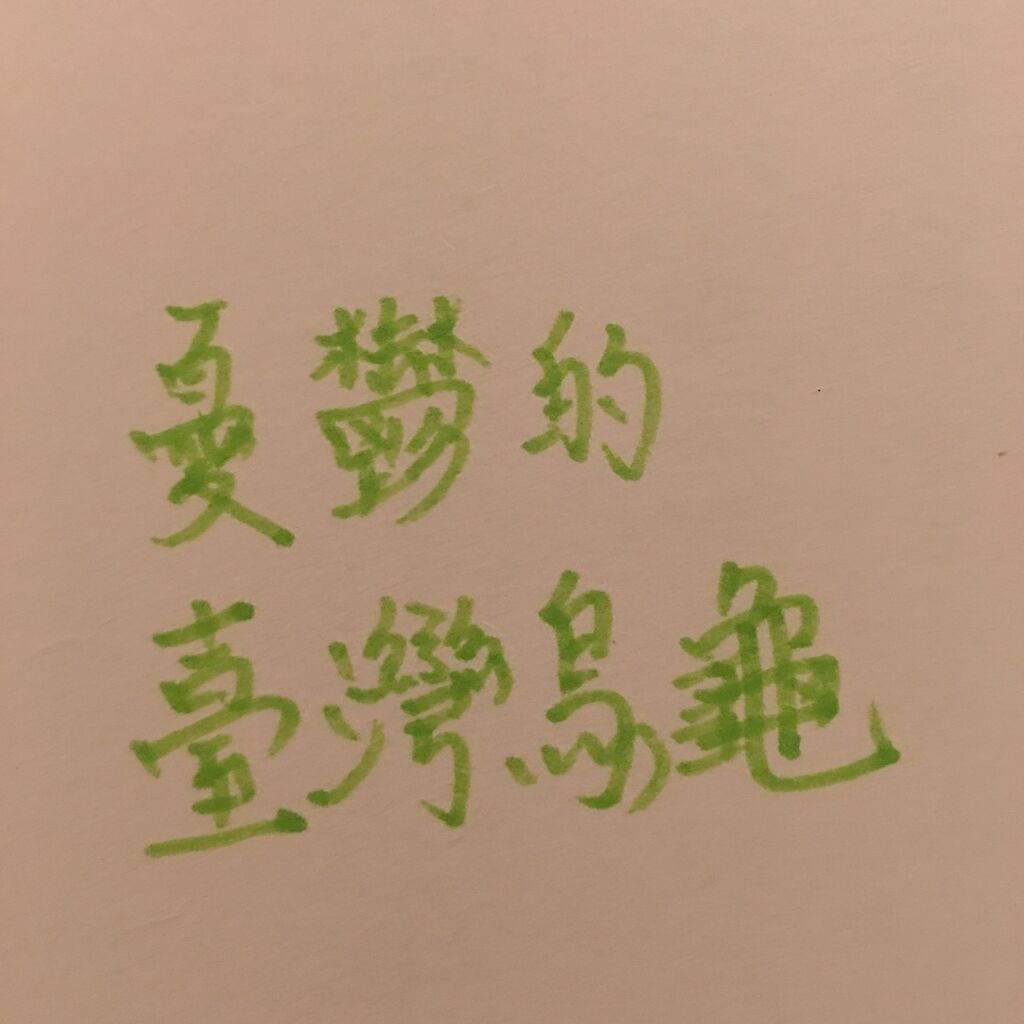 憂鬱的
臺灣烏龜